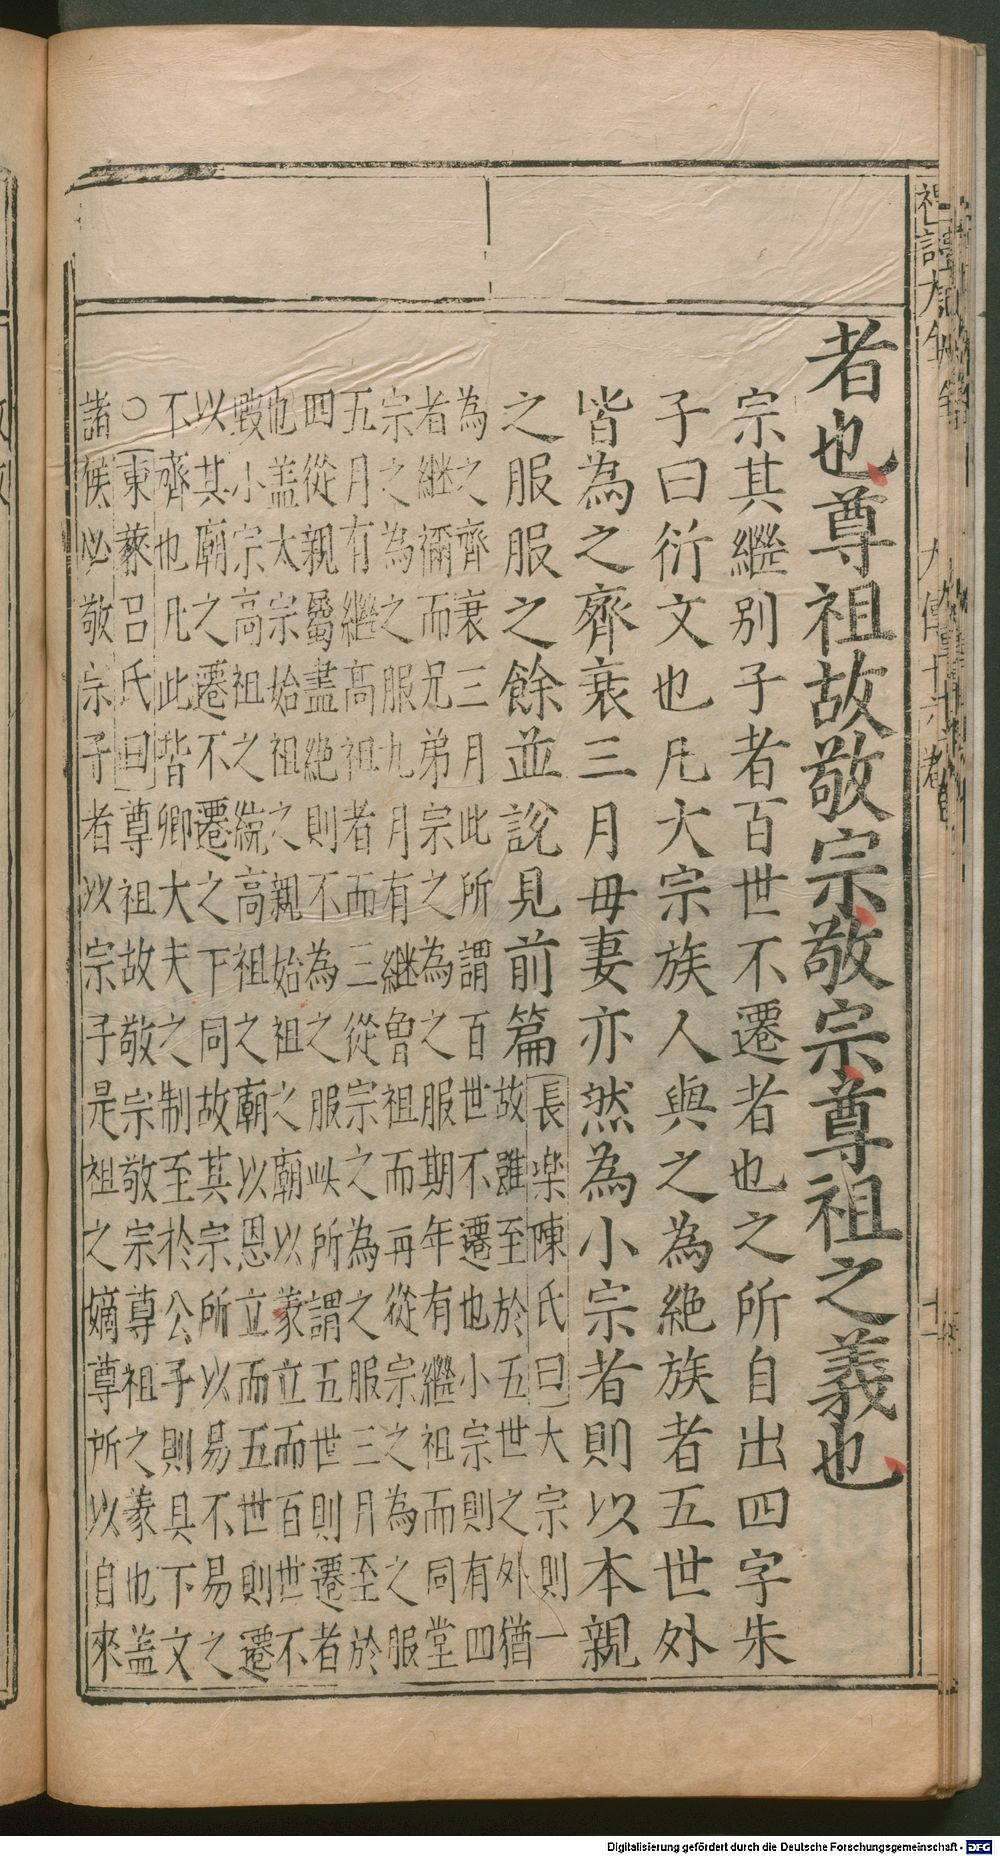 者也尊祖故敬宗敬宗尊祖之義也
宗其繼別子者百世不遷者也之所自出四字朱
子曰衍文也凡大宗族人與之為絕族者五世外
皆為之齊衰三月毋妻亦然為小宗者則以本親
之服服之餘並說見前篇
長楽陳氏曰大宗則一
故雖至於五世之外猶
為之齊衰三月此所謂百世不遷也小宗則有四
者繼禰而兄弟宗之為之服期年有繼祖而同堂
宗之為之服九月有繼曾祖而再從宗之為之服
五月有繼高祖者而三從宗之為之服三月至於
四從親屬盡絕則不為之服此所謂五世則遷者
也盖太宗始祖之親始祖之廟以義立而百世不
毀小宗高祖之統高祖之廟以恩立而五世則遷
以其廟之遷不遷之下同故其宗所以易不易之
不齊也凡此皆卿大夫之制至於公子則具下文
○東萊呂氏曰尊祖故敬宗敬宗尊祖之義也盖
諸侯必敬宗子者以宗子是祖之嫡尊所以自來
Digitalisierung gefördert durch die Deutsche Forschungsgemeinschaft - DFG